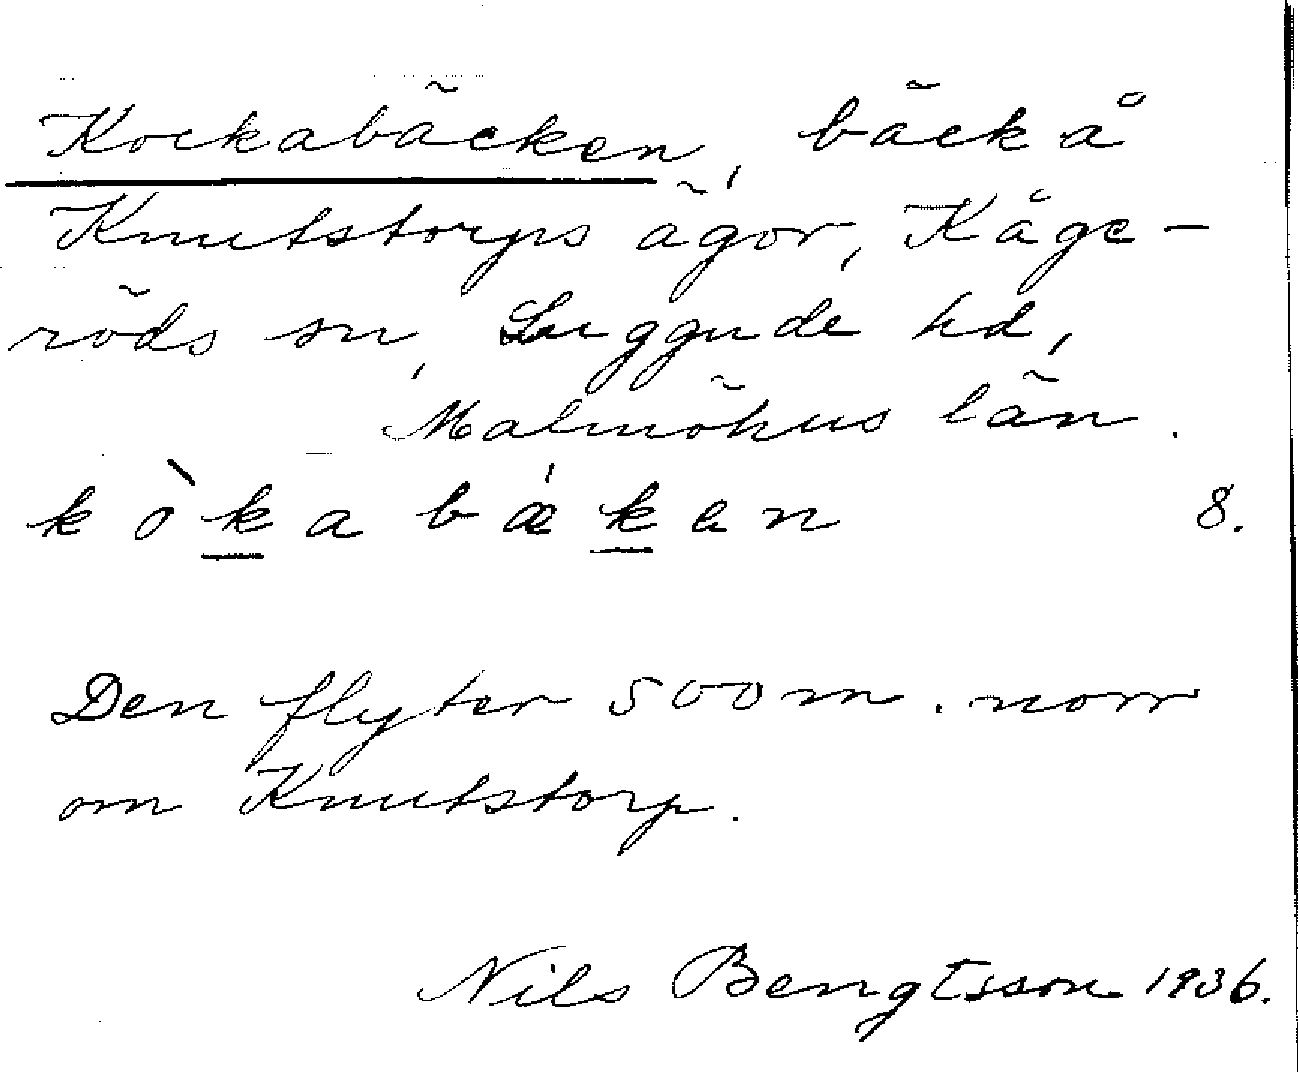 Kockabäcken, bäck å
Knutstorps ägor, Kåge-
röds sn, Luggude hd,
Malmöhus län.
kòkabǽken 8.
Den flyter 500 m. norr
om Knutstorp.
Nils Bengtsson 1936.